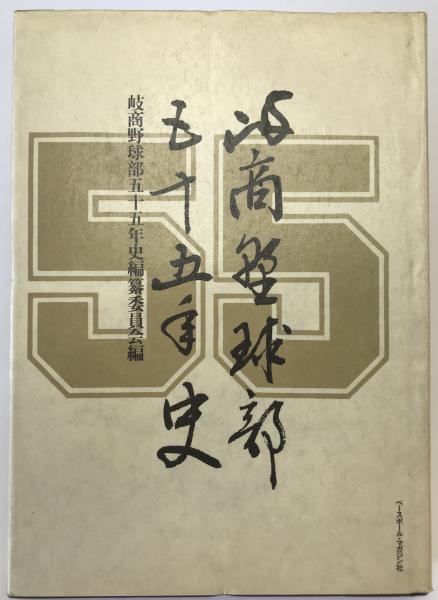 岐商野球部
五十五年史
岐商野球部五十五年史編纂委員会編
55
ベースボール・マガジン社